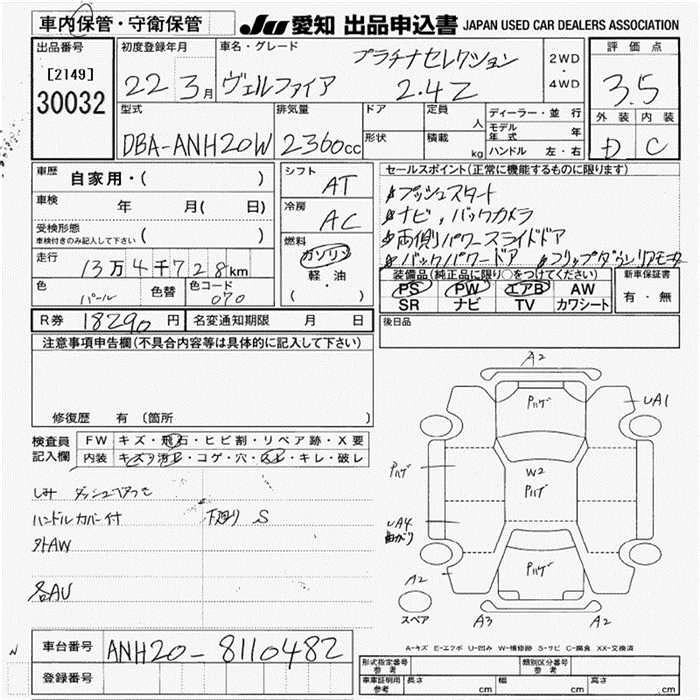 車内保管・守衛保管
JU 愛知 出品申込書 JAPAN USED CAR DEALERS ASSOCIATION
出品番号
[2149]
30032
初度登録年月
22 3月
車名・グレード
プラチナセレクション
ヴェルファイア 2.4Z
2WD
・
4WD
評価点
3.5
外装 内装
D C
型式
DBA-ANH20W
排気量
2360cc
ドア
形状
定員 人
積載 kg
ディーラー・並行
モデル年式 年
ハンドル 左・右
車歴 自家用・( )
車検 年 月( 日)
受検形態
車検付きのみ記入して下さい ( )
走行 13万4千728km
色 パール 色替 色コード 070
シフト AT
冷房 AC
燃料
ガソリン
軽・油
( )
セールスポイント(正常に機能するものに限ります)
プッシュスタート
ナビ,バックカメラ
両側パワースライドドア
バックパワードア フリップダウンリアモニタ
装備品(純正品に限り○をつけてください)
PS PW エアB AW
SR ナビ TV カワシート
新車保証書
有・無
R券 18290円 名変通知期限 月 日
後日品
注意事項申告欄(不具合内容等は具体的に記入して下さい)
修復歴 有 (箇所 )
検査員記入欄
FW キズ・飛石・ヒビ割・リペア跡・X要
内装 キズ・汚レ・コゲ・穴・スレ・キレ・破レ
しみ
ハンドルカバー付 下廻り S
外AW
各AU
A2
Pハゲ
UA1
Pハゲ
W2
Pハゲ
UA4
曲がり
Pハゲ
A2
スペア
A3 A2
A-キズ E-エクボ U-凹み W-補修跡 S-サビ C-腐食 XX-交換済
車台番号 ANH20-8110482
登録番号
形式指定番号 参考
類別区分番号 参考
車車証明用 参考 長さ cm 幅 cm 高さ cm